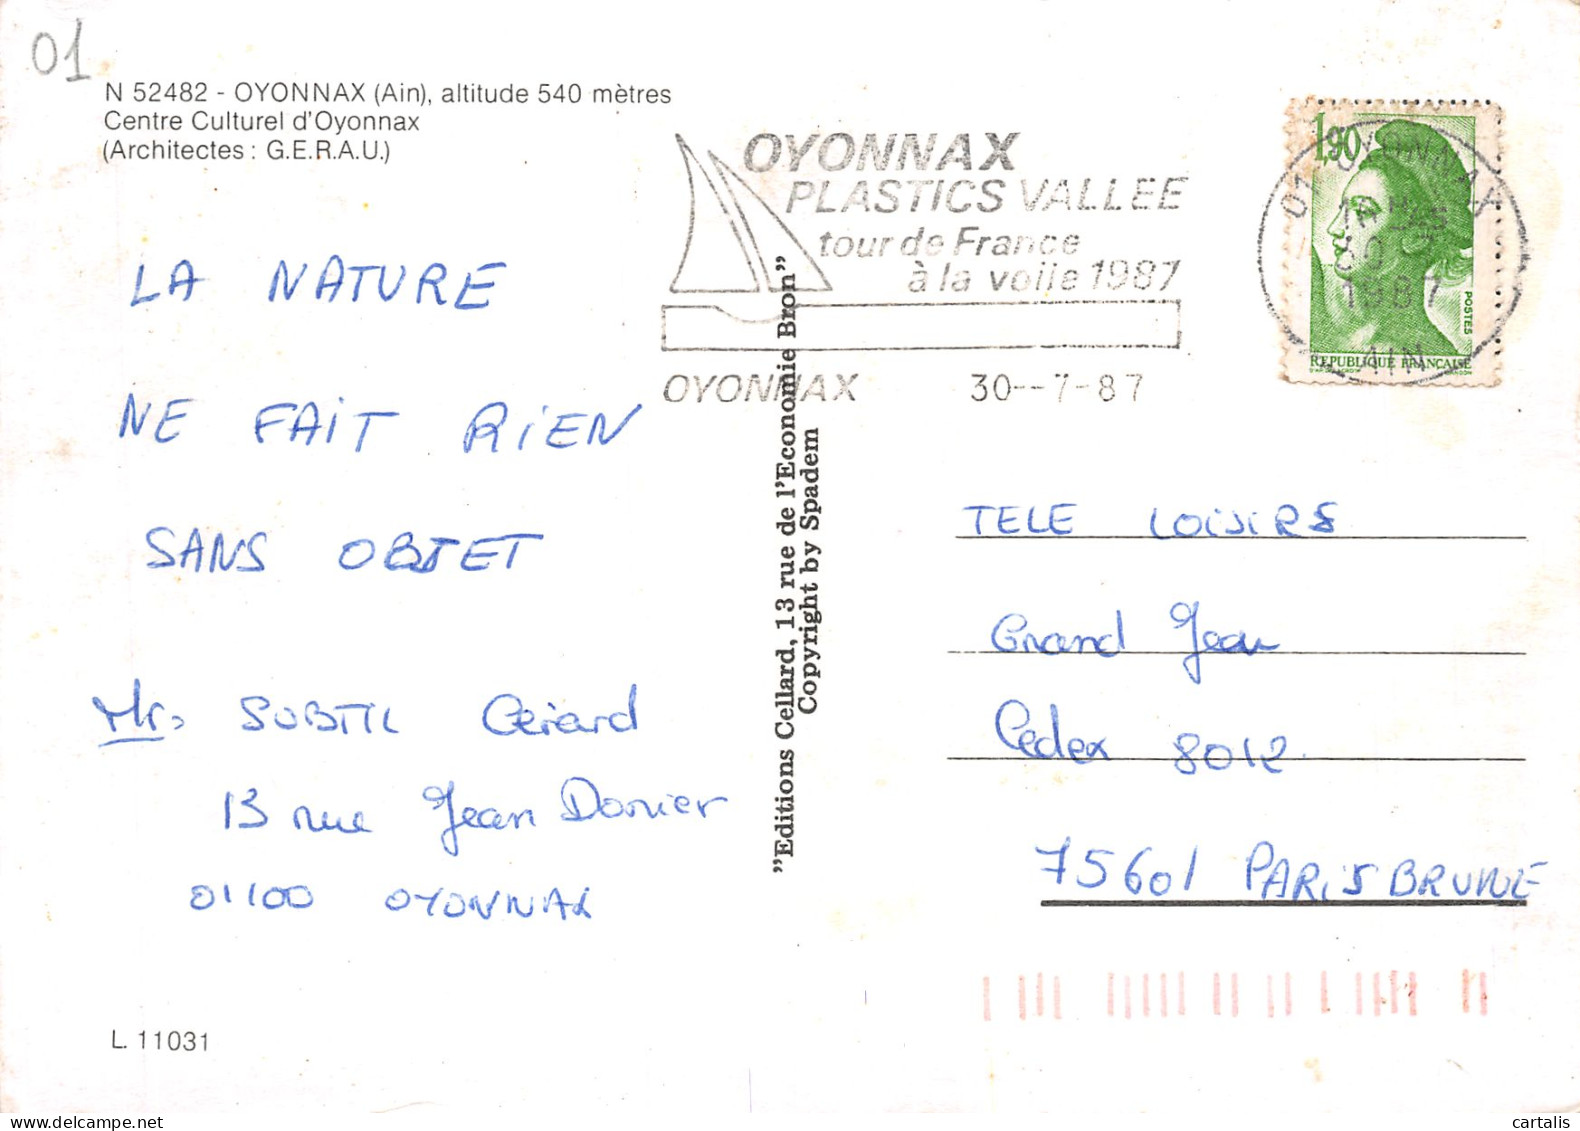 01
N 52482 - OYONNAX (Ain), altitude 540 mètres
Centre Culturel d'Oyonnax
(Architectes : G.E.R.A.U.)
OYONNAX
PLASTICS VALLEE
tour de France
à la voile 1987
OYONNAX 30--7-87
1,90
POSTES
REPUBLIQUE FRANCAISE
01 OYONNAX
1987
AIN
LA NATURE
NE FAIT RIEN
SANS OBJET
Mr. SUBTIL Gérard
13 rue Jean Donier
01100 OYONNAX
L. 11031
"Editions Cellard, 13 rue de l'Economie Bron"
Copyright by Spadem
TELE LOISIRS
Grand Jeau
Cedex 8012
75601 PARIS BRUNE
cartalis